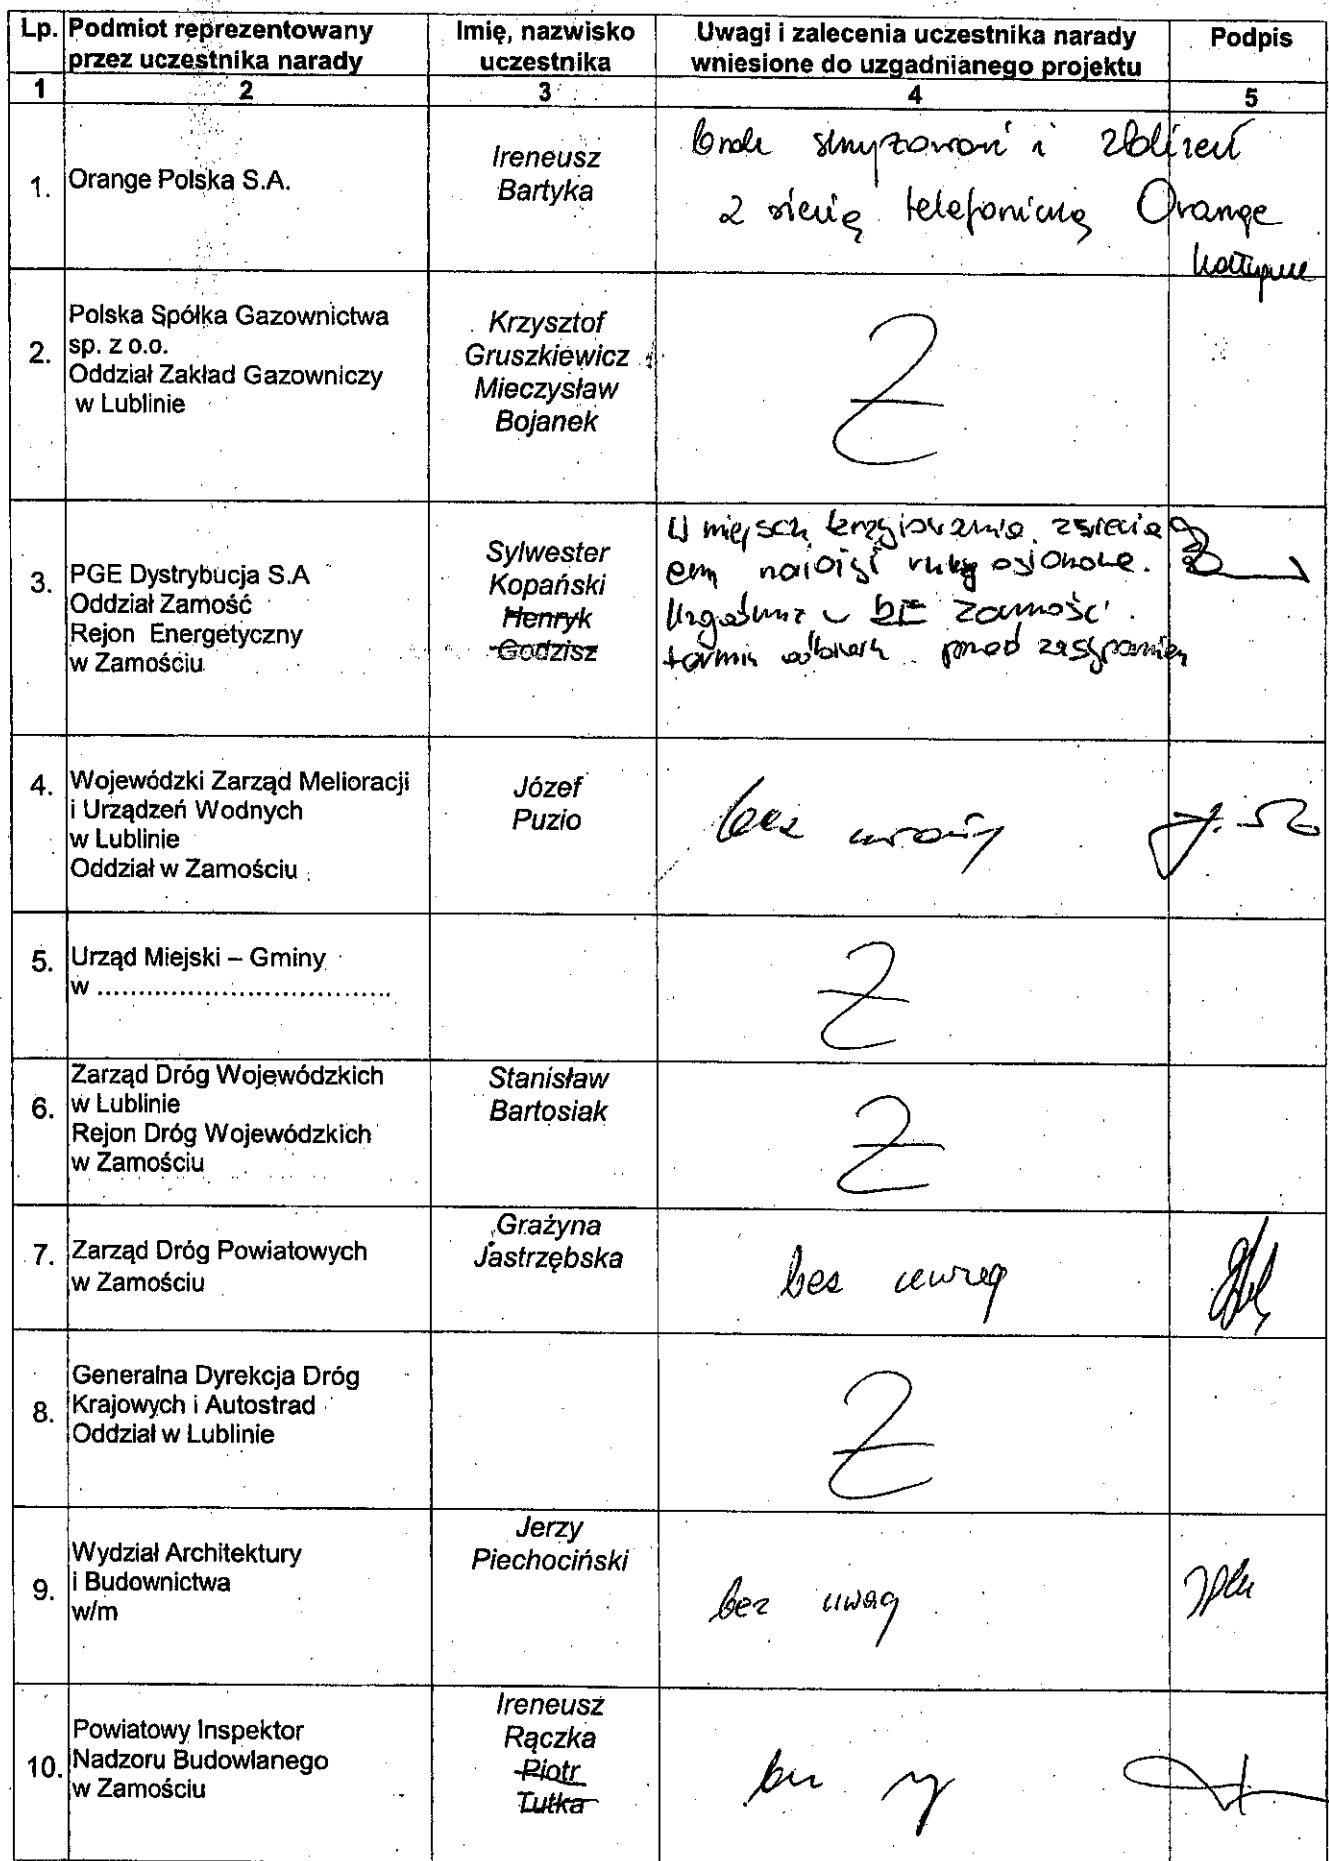 Lp. Podmiot reprezentowany przez uczestnika narady Imię, nazwisko uczestnika Uwagi i zalecenia uczestnika narady wniesione do uzgadnianego projektu Podpis
1 2 3 4 5
1. Orange Polska S.A.
Ireneusz
Bartyka
skrzyżowań i zbliżeń
z siecią telefoniczną Orange
2. Polska Spółka Gazownictwa
sp. z o.o.
Oddział Zakład Gazowniczy
w Lublinie
Krzysztof
Gruszkiewicz
Mieczysław
Bojanek
3. PGE Dystrybucja S.A
Oddział Zamość
Rejon Energetyczny
w Zamościu
Sylwester
Kopański
Henryk
Godzisz
W miejscu
osłonowe.
Zamość
termin przed zasypaniem
4. Wojewódzki Zarząd Melioracji
i Urządzeń Wodnych
w Lublinie
Oddział w Zamościu
Józef
Puzio
bez uwag
5. Urząd Miejski – Gminy
w ...................................
6. Zarząd Dróg Wojewódzkich
w Lublinie
Rejon Dróg Wojewódzkich
w Zamościu
Stanisław
Bartosiak
7. Zarząd Dróg Powiatowych
w Zamościu
Grażyna
Jastrzębska
bez uwag
8. Generalna Dyrekcja Dróg
Krajowych i Autostrad
Oddział w Lublinie
9. Wydział Architektury
i Budownictwa
w/m
Jerzy
Piechociński
bez uwag
10. Powiatowy Inspektor
Nadzoru Budowlanego
w Zamościu
Ireneusz
Rączka
Piotr
Tutka